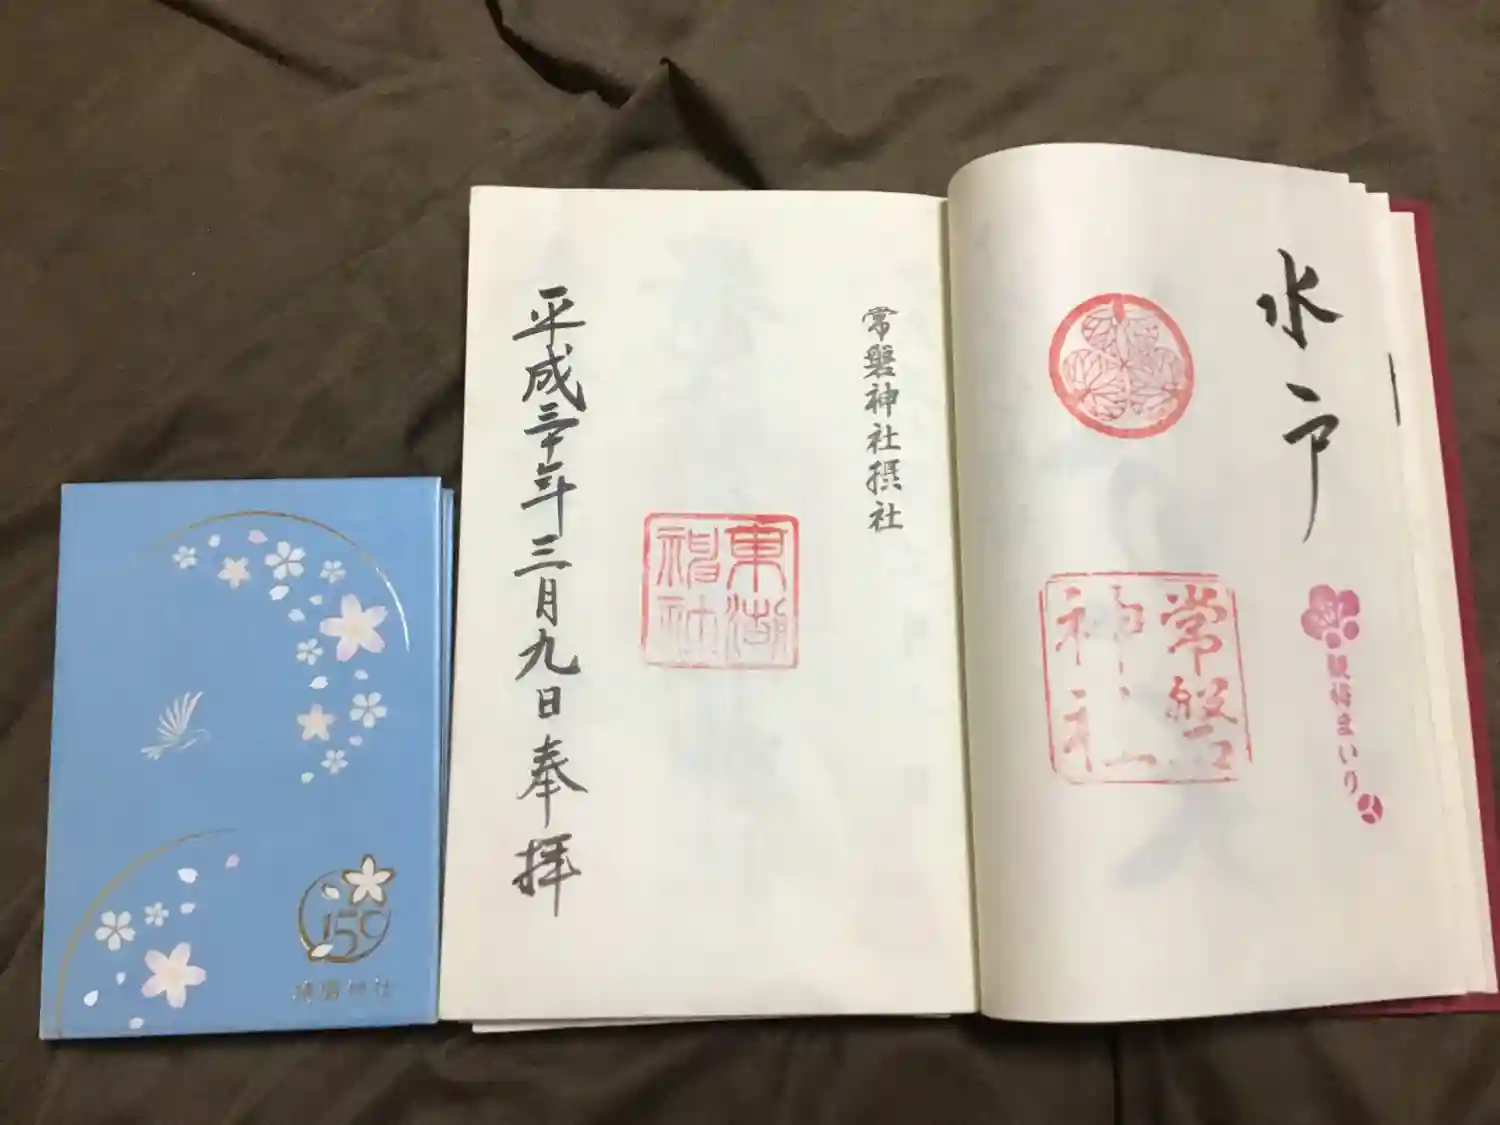 水戸
観梅まいり
常磐
神社
常磐神社摂社
東湖
神社
平成三十年三月九日奉拝
150